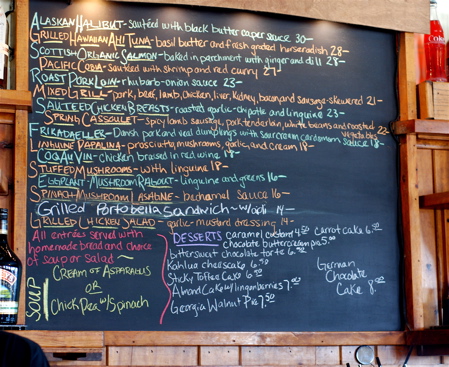 Alaskan Halibut - sautéed with black butter caper sauce 30-
Grilled Hawaiian Ahi Tuna - basil butter and fresh grated horseradish 28-
Scottish Organic Salmon - baked in parchment with ginger and dill 28-
Pacific Cobia - sautéed with shrimp and red curry 27-
Roast Pork Loin - rhubarb-onion sauce 23-
Mixed Grill - pork, beef, lamb, chicken, liver, kidney, bacon and sausage-skewered 21-
Sautéed Chicken Breasts - roasted garlic-chipotle and linguine 23-
Spring Cassoulet - spicy lamb sausage, pork tenderloin, white beans and roasted vegetables 22-
Frikadeller - Danish pork and veal dumplings with sour cream cardamom sauce 18-
Linguine Papalina - prosciutto, mushrooms, garlic, and cream 18-
Coq Au Vin - chicken braised in red wine 18-
Stuffed Mushrooms - with linguine 18-
Eggplant-Mushroom Ragout - linguine and greens 16-
Spinach Mushroom Lasagne - bechamel sauce 16-
Grilled Portobella Sandwich - w/aoli 14-
Grilled Chicken Salad - garlic-mustard dressing 14-
All entrées served with
homemade bread and choice
of soup or salad~
SOUP
Cream of Asparagus
OR
Chick Pea w/ Spinach
DESSERTS
caramel custard 4.50
carrot cake 6.50
chocolate buttercream pie 5.00
bittersweet chocolate torte 6.50
Kahlua cheesecake 6.50
Sticky Toffee Cake 6.50
Almond Cake w/ lingonberries 7.00
Georgia Walnut Pie 7.50
German
Chocolate
Cake 8.00